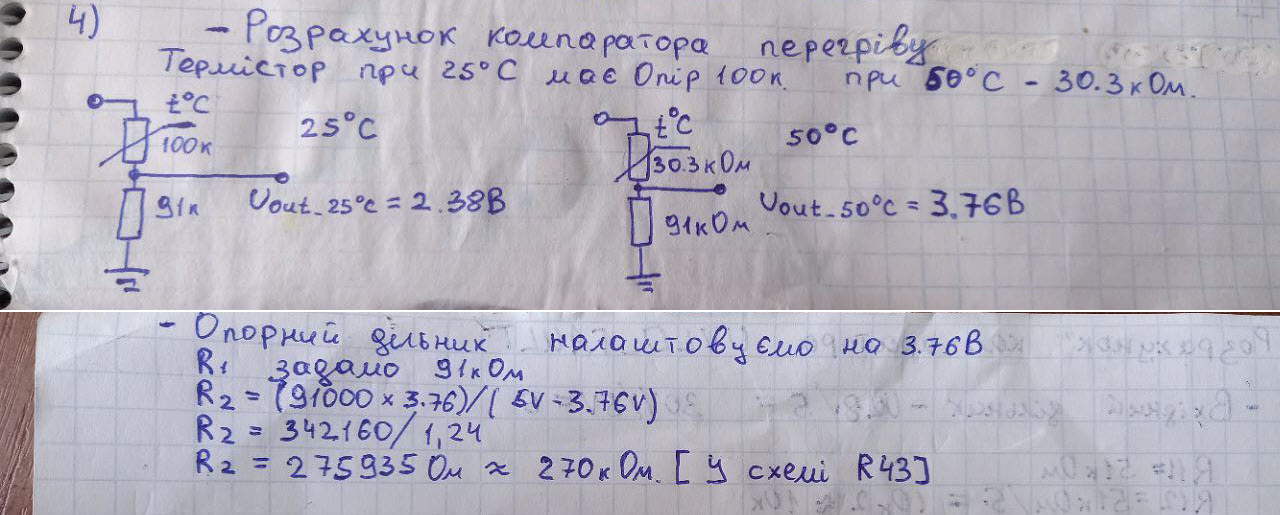 4)
- Розрахунок компаратора перегріву
Термістор при 25°C має Опір 100к. при 50°C - 30.3кОм.
t°C
100к
25°C
91к
Uout_25°c = 2.38В
t°C
30.3кОм
50°C
91кОм
Uout_50°c = 3.76В
- Опорний дільник налаштовуємо на 3.76В
R1 задамо 91кОм
R2 = (91000 × 3.76)/(5V-3.76V)
R2 = 342160/1,24
R2 = 275935 Ом ≈ 270кОм. [У схемі R43]